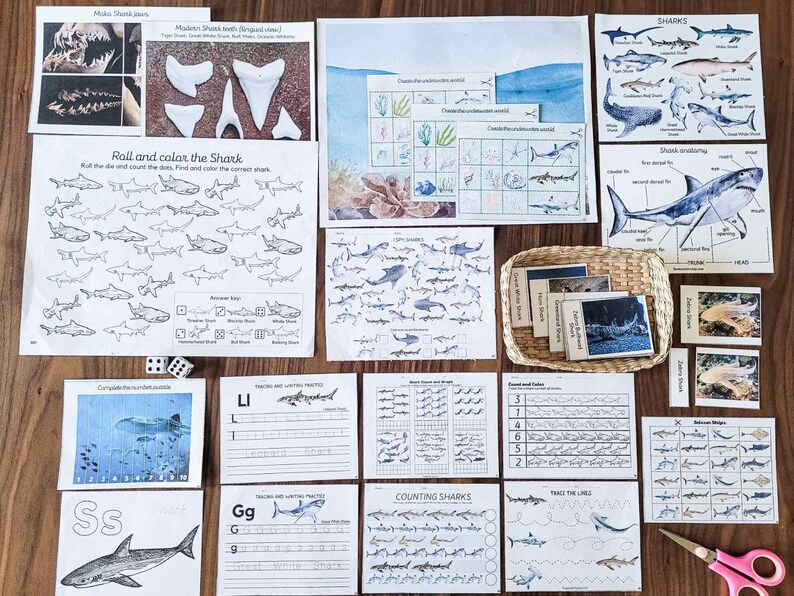 Mako Shark jaws
Modern Shark teeth (lingual view)
Tiger Shark, Great White Shark, Bull, Mako, Oceanic Whitetip
Create the underwater world
Create the underwater world
Create the underwater world
SHARKS
Thresher Shark
Leopard Shark
Mako Shark
Tiger Shark
Greenland Shark
Caribbean Reef Shark
Blacktip Shark
Whale Shark
Great
Hammerhead
Shark
Great White Shark
Shark anatomy
snout
nostril
first dorsal fin
eye
caudal fin
second dorsal fin
mouth
caudal keel
gill
opening
anal fin
pectoral fins
TRUNK
HEAD
Roll and color the Shark
Roll the die and count the dots. Find and color the correct shark.
Answer key:
Thresher Shark
Blacktip Shark
Whale Shark
Hammerhead Shark
Bull Shark
Basking Shark
I SPY, SHARKS
Great White Shark
Horn Shark
Greenland Shark
Zebra Bullhead
Shark
Zebra Shark
Zebra Shark
Complete the number puzzle
1 2 3 4 5 6 7 8 9 10
TRACING AND WRITING PRACTICE
Ll
Leopard Shark
L
l
Leopard Shark
Shark Count and Graph
Count and Color
Color the correct number of sharks.
3
1
4
6
5
2
Scissor Strips
Ss
Shark
TRACING AND WRITING PRACTICE
Gg
Great White Shark
G G G G G G G G
g g g g g g g g
Great White Shark
COUNTING SHARKS
TRACE THE LINES